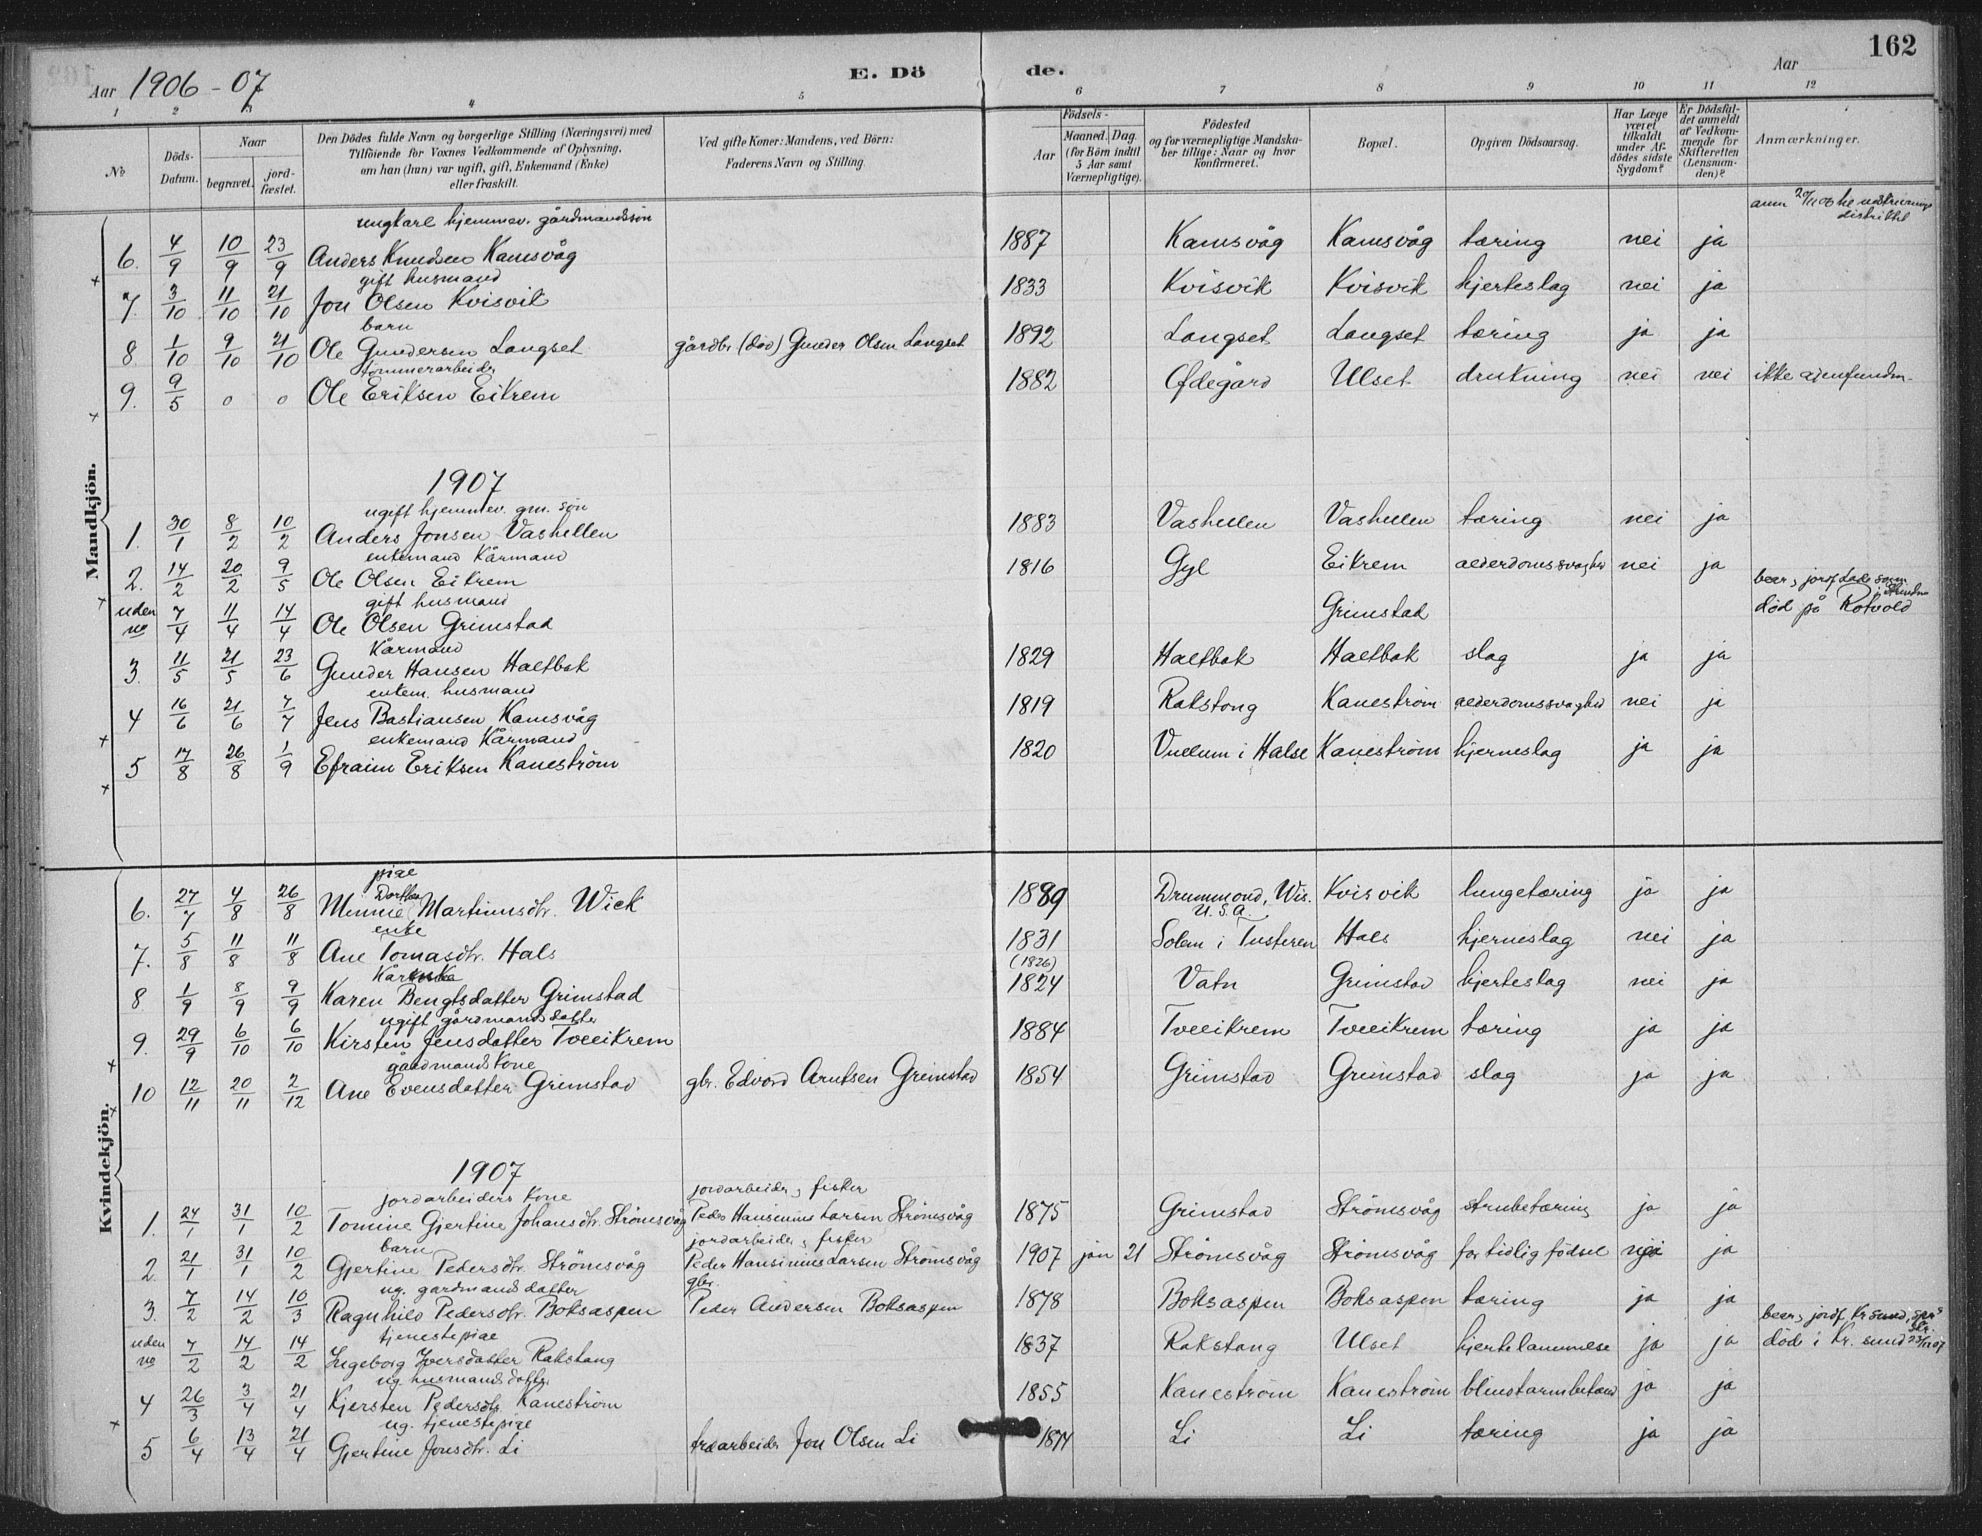 162
Aar 1906-07
E. Döde.
Aar
1 2 3 4 5 6 7 8 9 10 11 12
No
Döds-Datum.
Naar
begravet.
jord-fæstet.
Den Dödes fulde Navn og borgerlige Stilling (Næringsvei) med
Tilföiende for Voxnes Vedkommende af Oplysning,
om han (hun) var ugift, gift, Enkemand (Enke)
eller fraskilt.
Ved gifte Koner: Mandens, ved Börn:
Faderens Navn og Stilling.
Födsels-
Aar
Maaned. Dag.
(for Börn indtil
5 Aar samt
Værnepligtige).
Födested
og for værnepligtige Mandska-
ber tillige: Naar og hvor
konfirmeret.
Bopæl.
Opgiven Dödsaarsag.
Har Læge
været
tilkaldt
under Af-
dödes sidste
Sygdom?
Er Dödsfal-
det anmeldt
af Vedkom-
mende for
Skifteretten
(Lensman-
den)?
Anmærkninger.
Mandkjön.
ungkarl hjemmev. gårdmandssön
6. 4/9 10/9 23/9 Anders Knudsen Kamsvåg 1887 Kamsvåg Kamsvåg tæring nei ja
gift husmand
7. 3/10 11/10 21/10 Jon Olsen Kvisvik 1833 Kvisvik Kvisvik hjerteslag nei ja
barn
8 1/10 9/10 21/10 Ole Gundersen Langset gårdbr. (död) Gunder Olsen Langset 1892 Langset Langset tæring ja ja
tömmerarbeider
9. 9/5 o o Ole Eriksen Eikrem 1882 Ödegård Ulset drukning nei nei ikke gjenfunden
1907
ugift hjemmev. gm. sön
1. 30/1 8/2 10/2 Anders Jonsen Vashellen 1883 Vashellen Vashellen tæring nei ja
enkemand kårmand
2. 14/2 20/2 9/5 Ole Olsen Eikrem 1816 Gyl Eikrem alderdomssvaghed nei ja
gift husmand
uden no 7/4 11/4 14/4 Ole Olsen Grimstad Grimstad död på Rotvold
Kårmand
3. 11/5 21/5 23/6 Gunder Hansen Haltbak 1829 Haltbak Haltbak slag ja ja
enkem. husmand
4 16/6 21/6 7/7 Jens Bastiansen Kamsvåg 1819 Rakstang Kaneström alderdomssvaghed nei ja
enkemand kårmand
5 17/8 26/8 1/9 Efraim Eriksen Kaneström 1820 Vullum i Halse Kaneström hjerneslag ja ja
Kvindekjön.
pige
Dorthea
6. 27/7 4/8 26/8 Minnie Martinusdtr. Wick 1889 Drummond, Wis. U.S.A. Kvisvik lungetæring ja ja
enke
7. 5/8 11/8 11/8 Ane Tomasdtr. Hals 1831 Solem i Tusteren Hals hjerneslag nei ja
(1826)
8 1/9 8/9 9/9 Karen Bengtsdatter Grimstad 1824 Vatn Grimstad hjerteslag nei ja
ugift gårdmandsdatter
9. 29/9 6/10 6/10 Kirsten Jensdatter Tveeikrem 1884 Tveeikrem Tveeikrem tæring ja ja
gårdmandskone
10 12/11 20/11 2/12 Ane Evensdatter Grimstad gbr. Edvard Arntsen Grimstad 1854 Grimstad Grimstad slag ja ja
1907
jordarbeiders kone jordarbeider, fisker
1. 24/1 31/1 10/2 Tomine Gjertine Johansdtr. Strömsvåg Peder Hansinius Larsen Strömsvåg 1875 Grimstad Strömsvåg strubetæring ja ja
barn jordarbeider, fisker
2. 21/1 31/1 10/2 Gjertine Pedersdtr. Strömsvåg Peder Hansinius Larsen Strömsvåg 1907 jan 21 Strömsvåg Strömsvåg for tidlig födsel ja
ug. gardmandsdatter gbr.
3. 7/2 14/2 10/3 Ragnhild Pedersdtr. Boksaspen Peder Andersen Boksaspen 1878 Boksaspen Boksaspen tæring ja ja
tjenestepige
uden no 7/2 14/2 14/2 Ingeborg Iversdatter Rakstang 1837 Rakstang Ulset hjertelammelse ja ja död i Kr. sund
ug. husmandsdatter
4 26/3 3/4 21/4 Kjersten Pedersdtr. Kaneström 1855 Kaneström Kaneström blindtarmbetænd ja ja
ug. tjenestepige
5 6/4 13/4 21/4 Gjertine Jonsdtr. Li Jon Olsen Li 1874 Li Li tæring ja ja